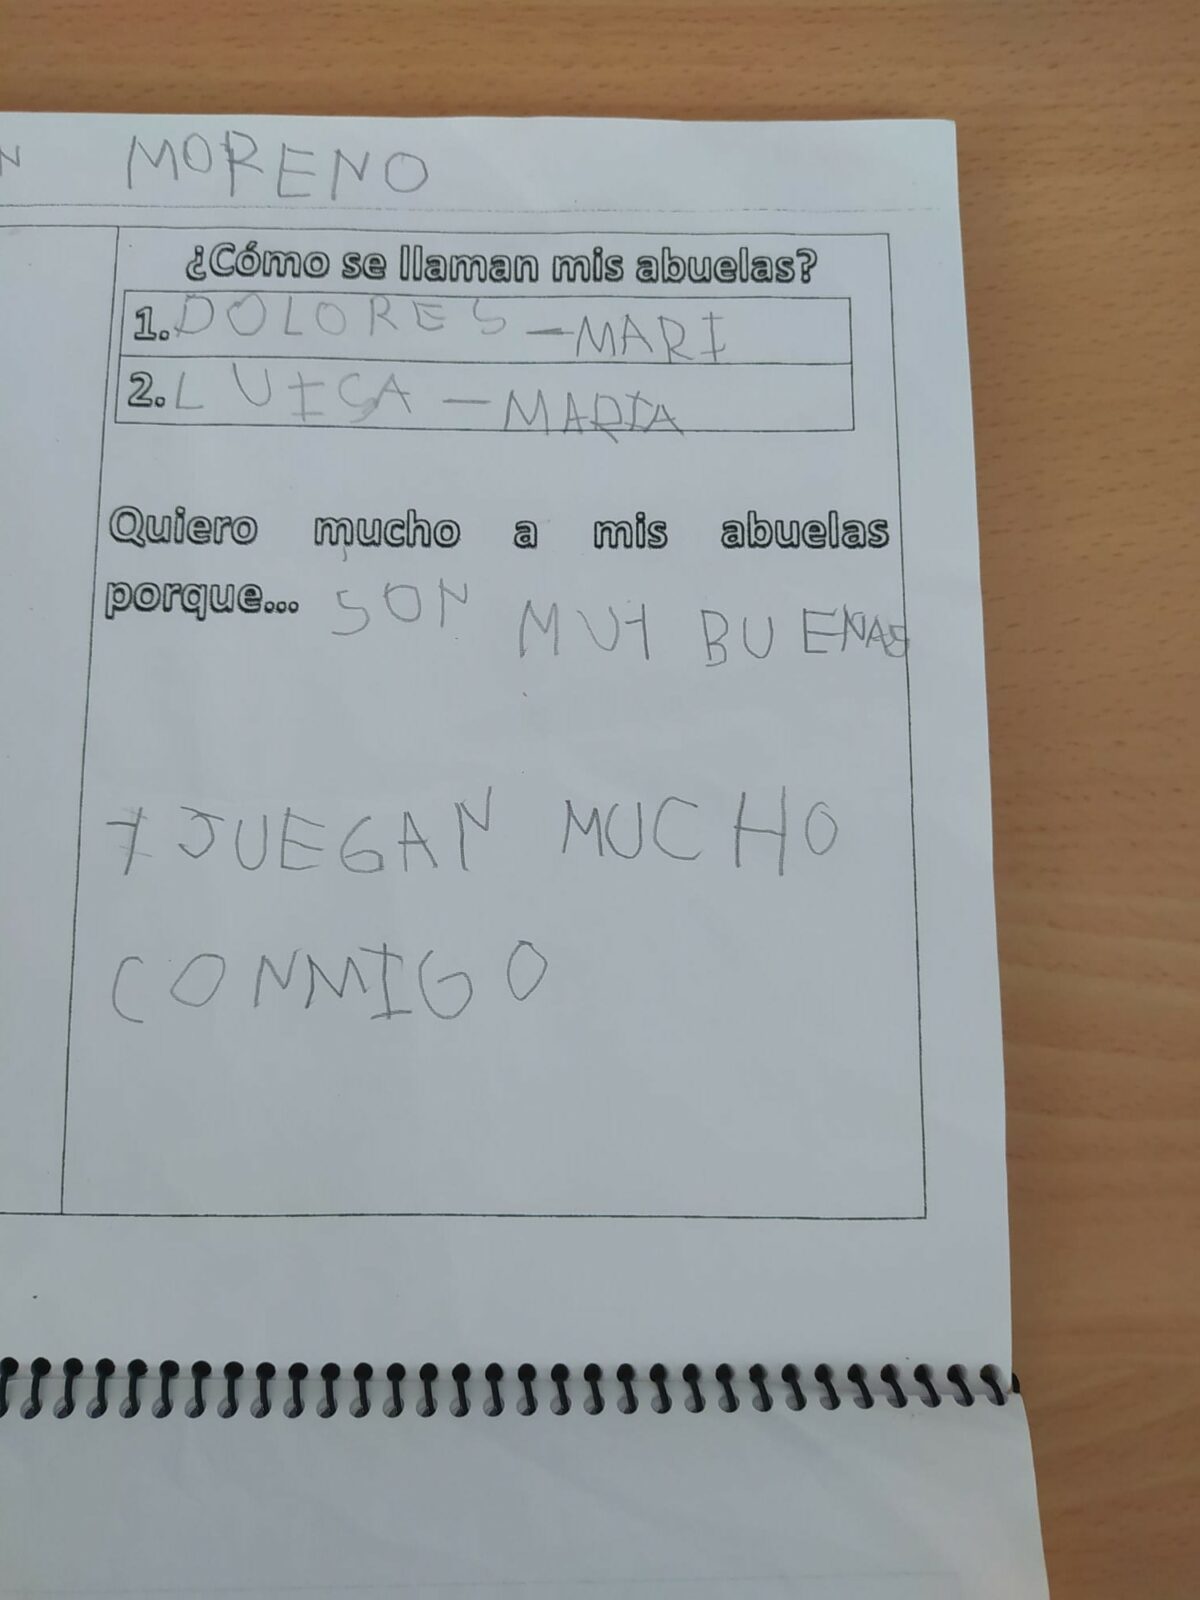 N MORENO
¿Cómo se llaman mis abuelas?
1. DOLORES - MARI
2. LUISA - MARIA
Quiero mucho a mis abuelas
porque... SON MUY BUENAS
Y JUEGAN MUCHO
CONMIGO